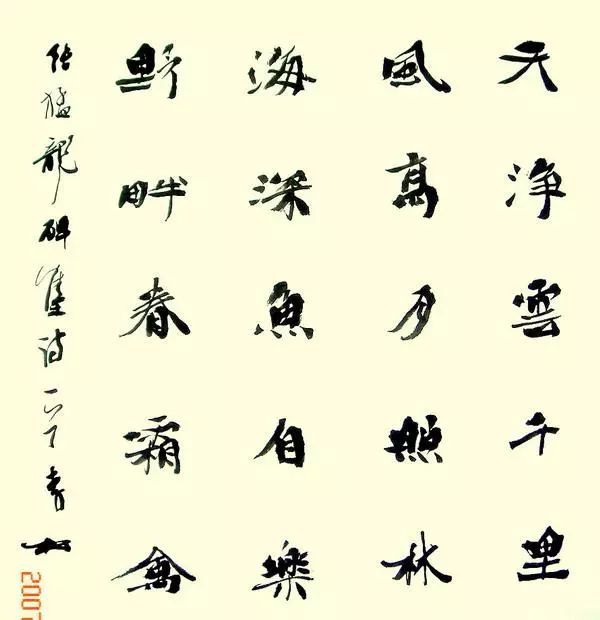 天淨雲千里
風高月照林
海深魚自樂
野畔春霜禽
張猛龍碑集詩
2007